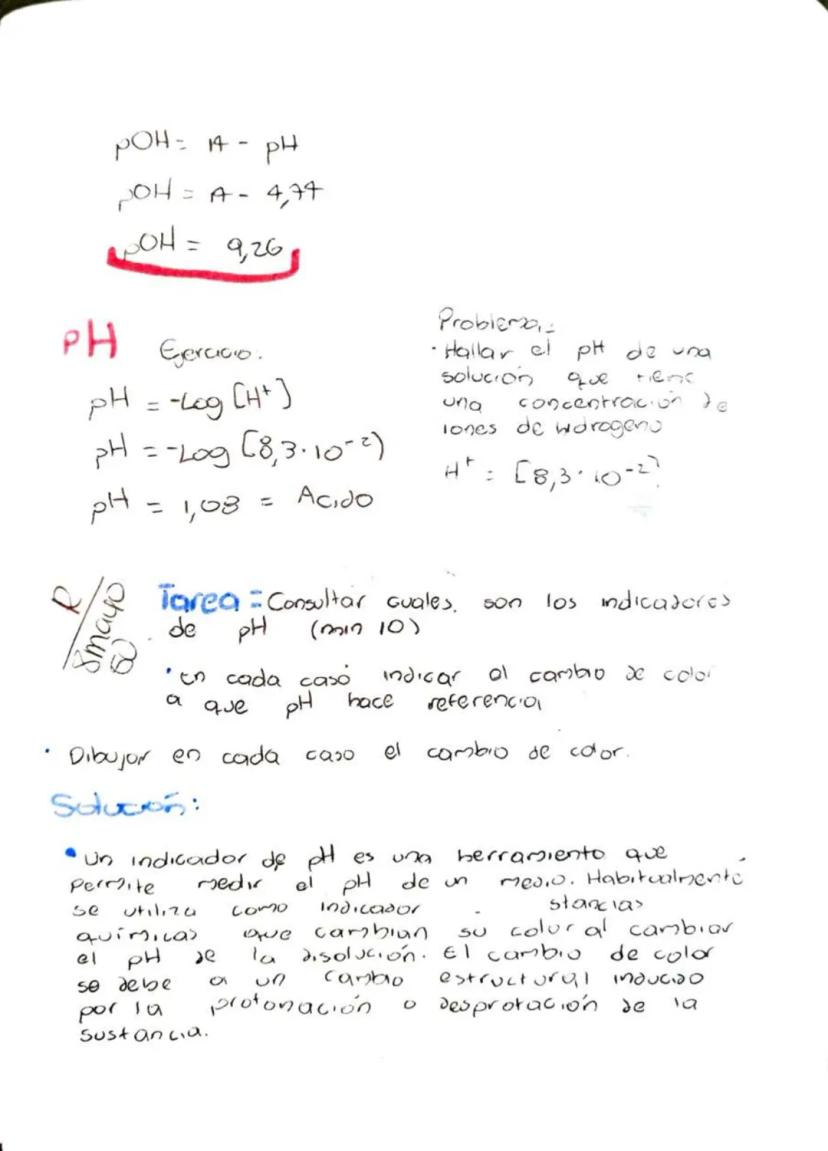 pOH = 14 - pH
pOH = 14 - 4,74
pOH = 9,26
pH Ejercicio.
pH = -Log [H+]
pH = -Log [8,3·10-2)
pH = 1,08 = Acido
Problema:
· Hallar el pH de una
solución que tiene
una concentración de
iones de hidrogeno
H+ = [8,3·10-2]
R
8 mayo
Tarea = Consultar cuales. son los indicadores
de pH (min 10)
· En cada caso indicar el cambio de color
a que pH hace referencia
· Dibujar en cada caso el cambio de color.
Solución:
• Un indicador de pH es una herramienta que
permite medir el pH de un medio. Habitualmente
se utiliza como indicador stancias
químicas que cambian su color al cambiar
el pH de la disolución. El cambio de color
se debe a un cambio estructural inducido
por la protonación o desprotación de la
sustancia.